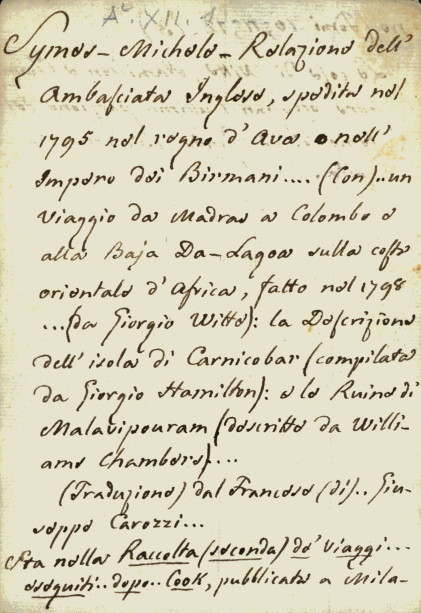 A^c. XII. 8
Symes - Michele - Relazione dell'
Ambasciata Inglese, spedita nel
1795 nel regno d'Ava o nell'
Impero dei Birmani.... (Con)..un
Viaggio da Madras a Colombo e
alla Baja Da-Lagoa sulla costa
orientale d'Africa, fatto nel 1798
...(da Giorgio Witte): la Descrizione
dell'isola di Carnicobar (compilata
da Giorgio Hamilton): e le Ruine di
Malavipouram (descritte da Willi-
ams Chambers)....
(Traduzione) dal Francese (di).. Giu-
seppe Carozzi...
Sta nella Raccolta (seconda) de' Viaggi...
eseguiti.. dopo.. Cook, pubblicata a Mila-